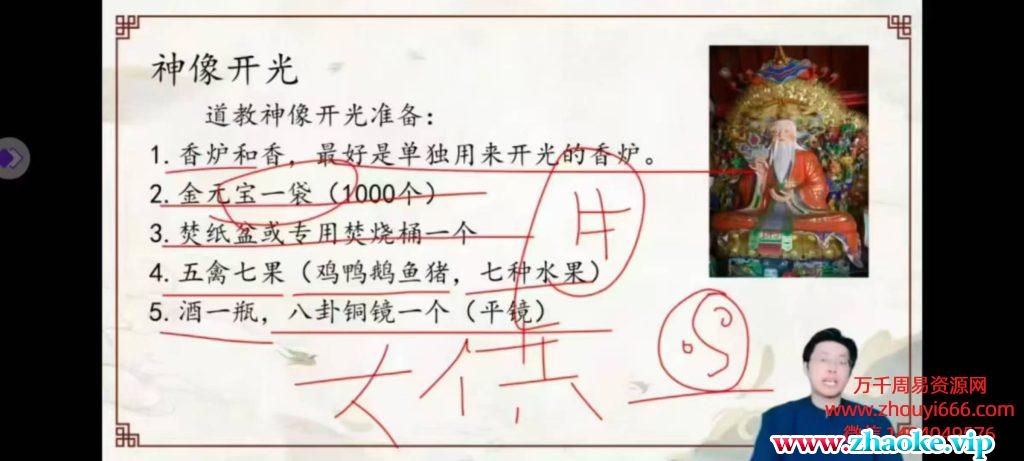 神像开光
道教神像开光准备：
1. 香炉和香，最好是单独用来开光的香炉。
2. 金元宝一袋（1000个）
3. 焚纸盆或专用焚烧桶一个
4. 五禽七果（鸡鸭鹅鱼猪，七种水果）
5. 酒一瓶，八卦铜镜一个（平镜）
万千周易资源网
www.zhouyi666.com
www.zhaoke.vip